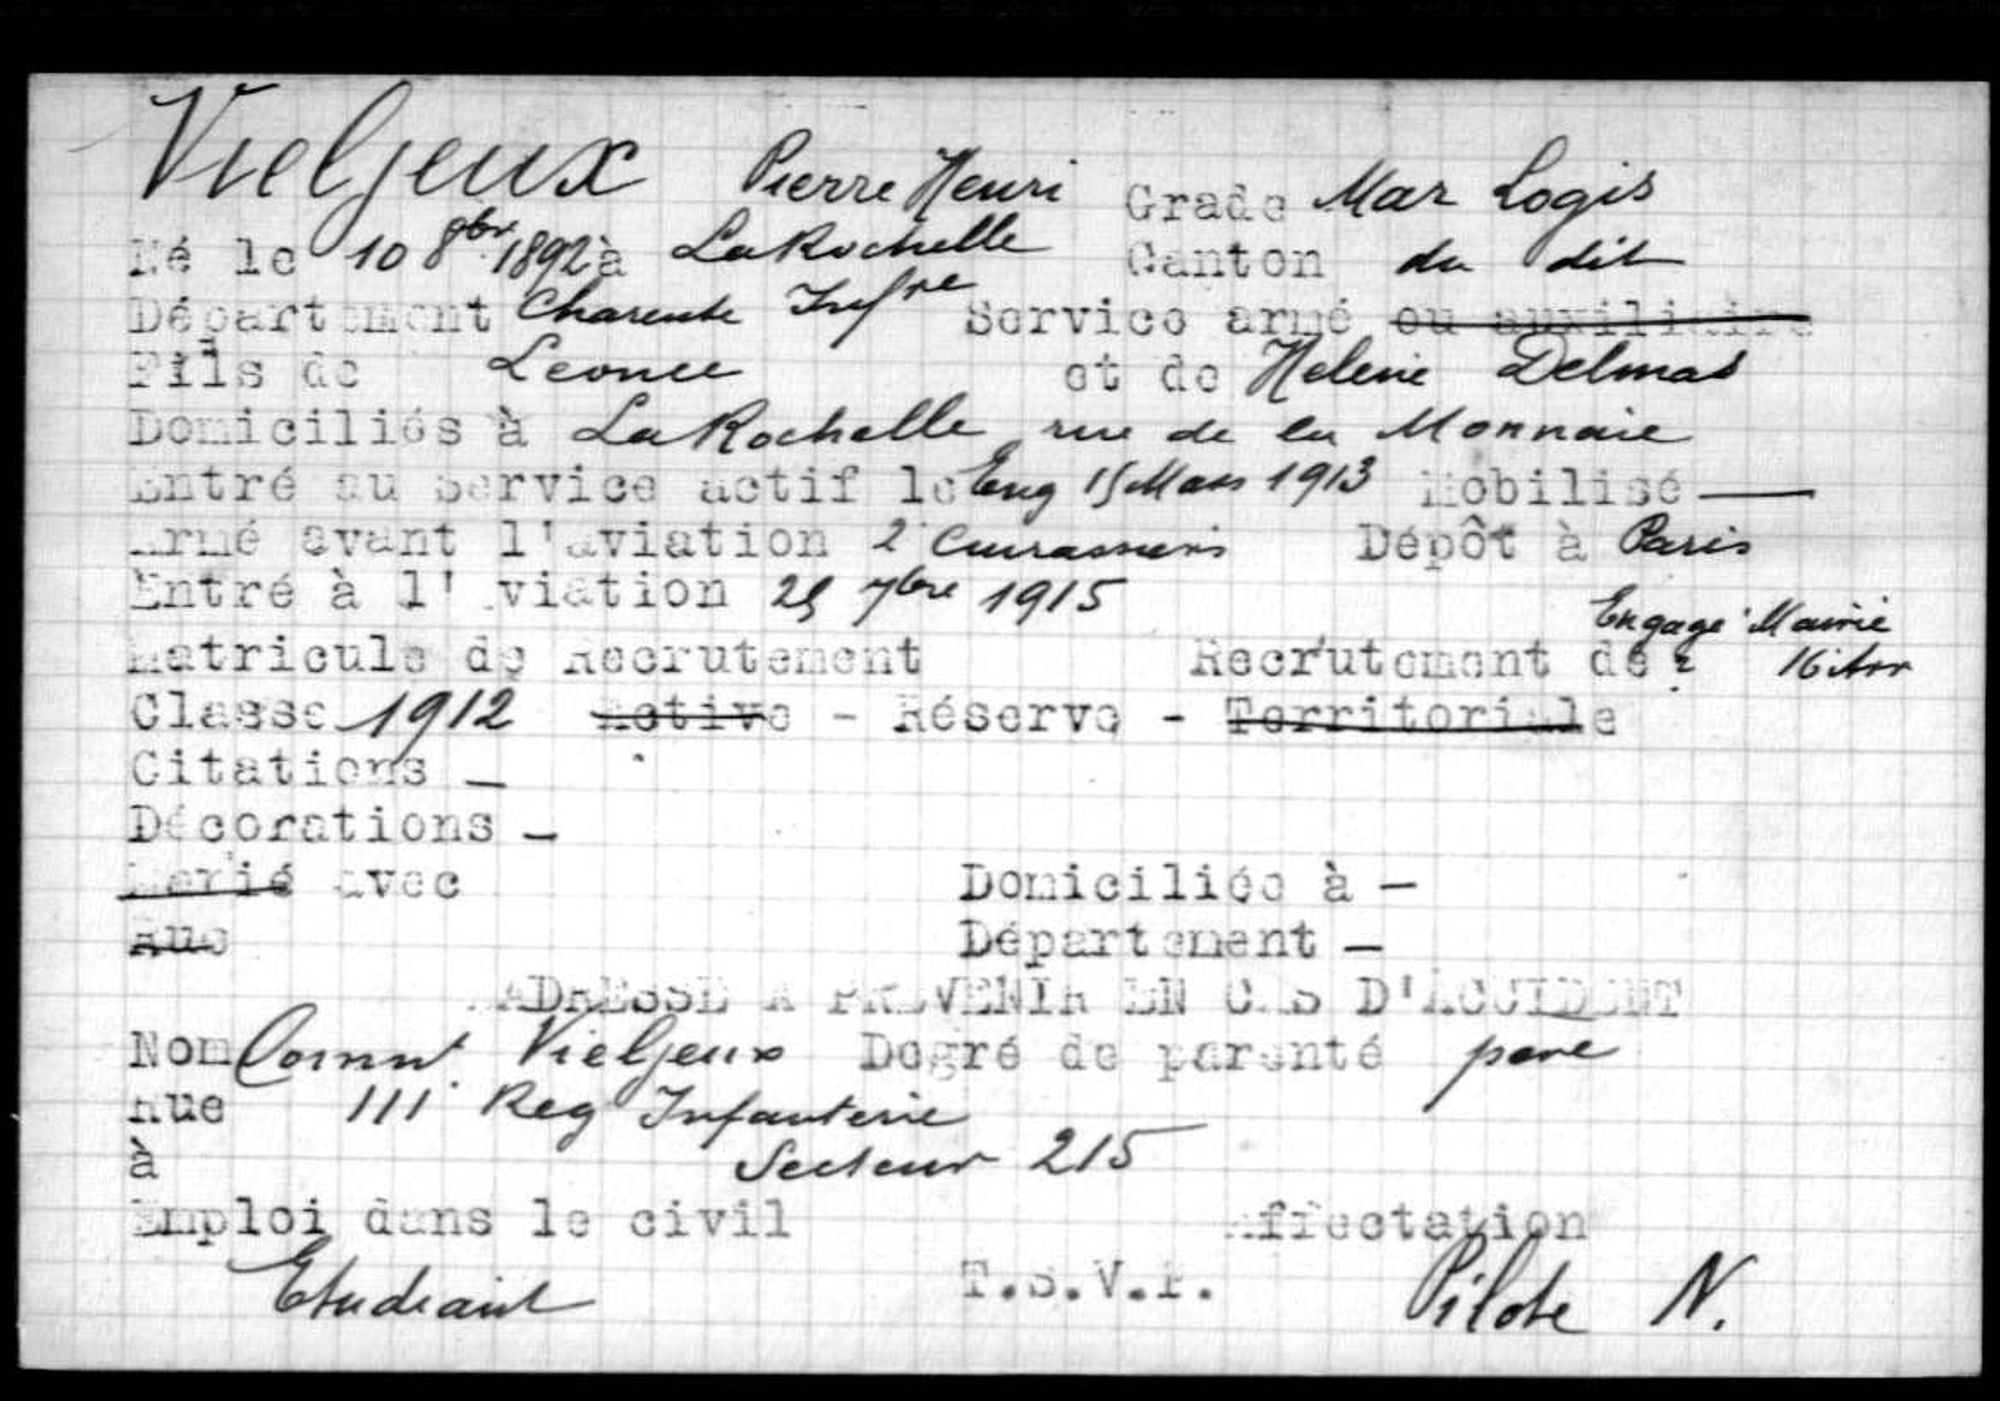 Vieljeux Pierre Henri Grade Mar Logis
Né le 10 8bre 1892 à La Rochelle Canton du dit
Département Charente Infre Service armé ou auxiliaire
Fils de Leonce et de Helene Delmas
Domiciliés à La Rochelle rue de la Monnaie
Entré au Service actif le Eng 15 Mars 1913 Mobilisé —
Armé avant l'aviation 2 Cuirassiers Dépôt à Paris
Entré à l'aviation 25 7bre 1915
Engagé Mairie
Matricule de Recrutement Recrutement de ? 16 Arr
Classe 1912 Active - Réserve - Territoriale
Citations —
Décorations —
Marié avec Domiciliée à —
Rue Département —
ADRESSE A PREVENIR EN CAS D'ACCIDENT
Nom Commt Vieljeux Degré de parenté pere
Rue 111 Reg Infanterie
à Secteur 215
Emploi dans le civil Affectation
Etudiant T.S.V.P. Pilote N.